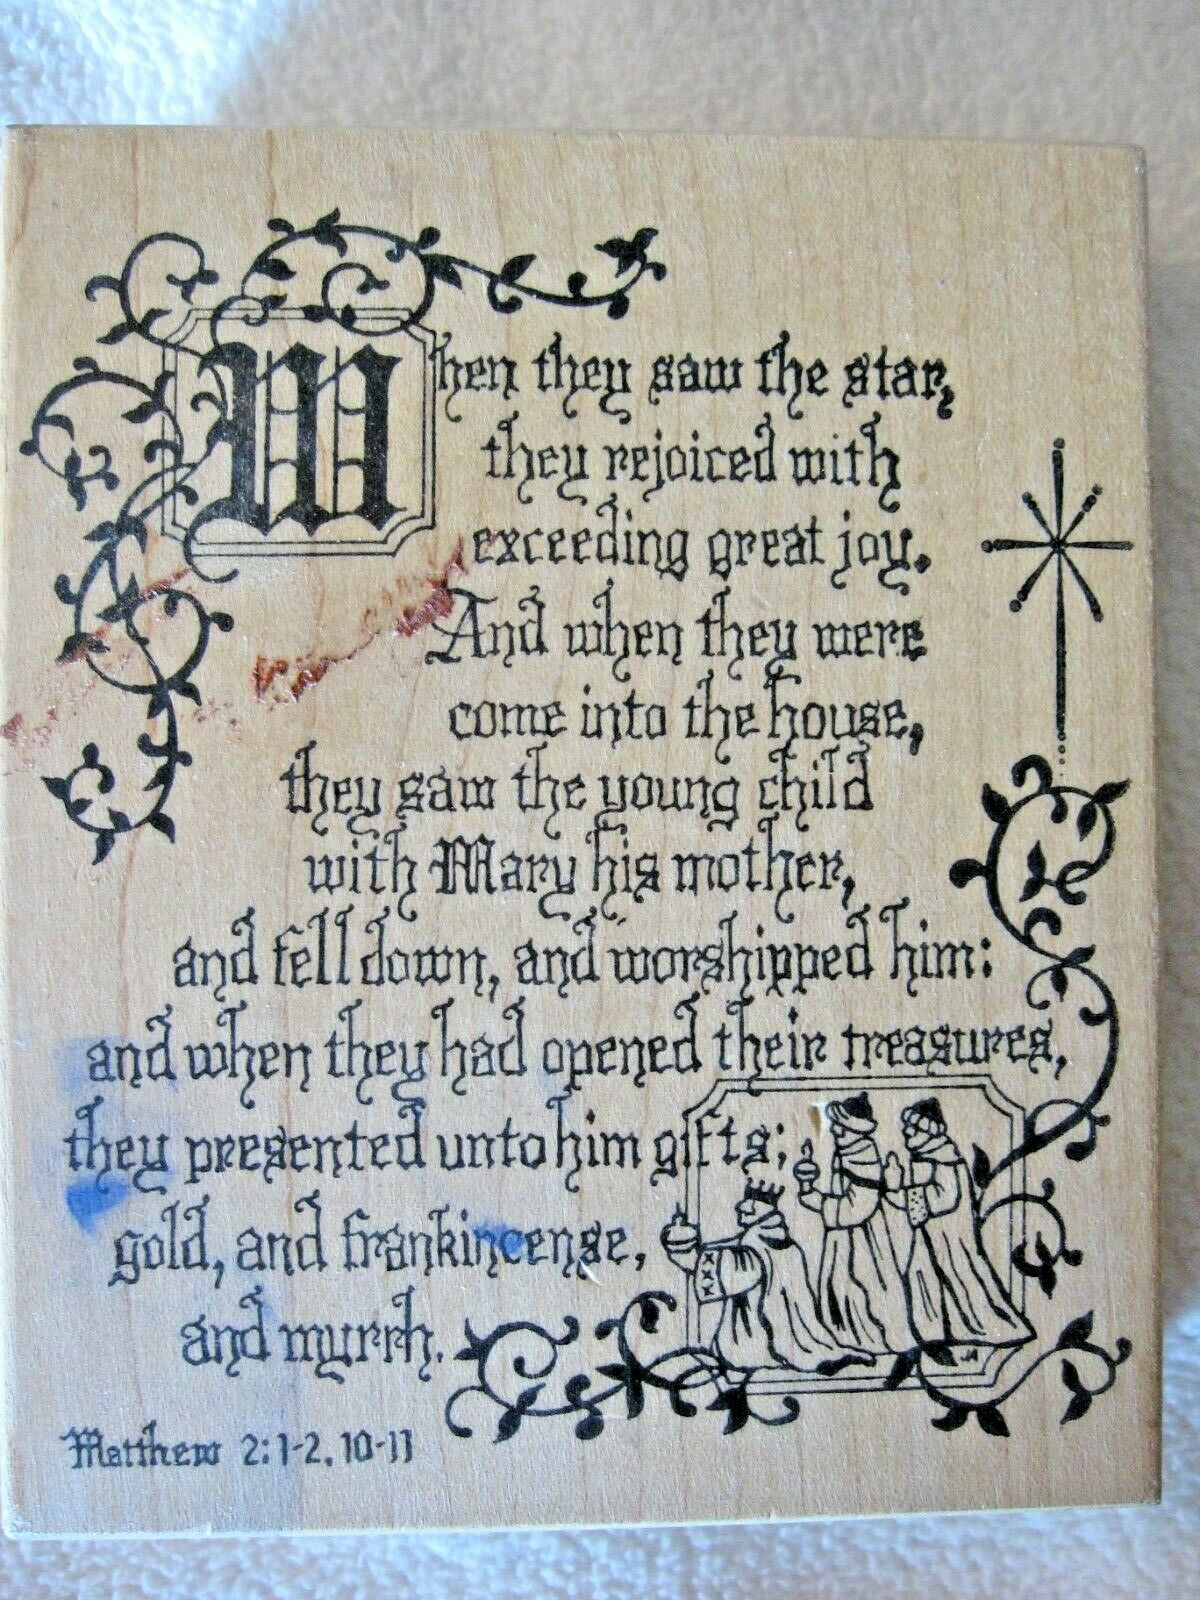 When they saw the star,
they rejoiced with
exceeding great joy.
And when they were
come into the house,
they saw the young child
with Mary his mother,
and fell down, and worshipped him:
and when they had opened their treasures,
they presented unto him gifts;
gold, and frankincense,
and myrrh.
JA
Matthew 2:1-2, 10-11